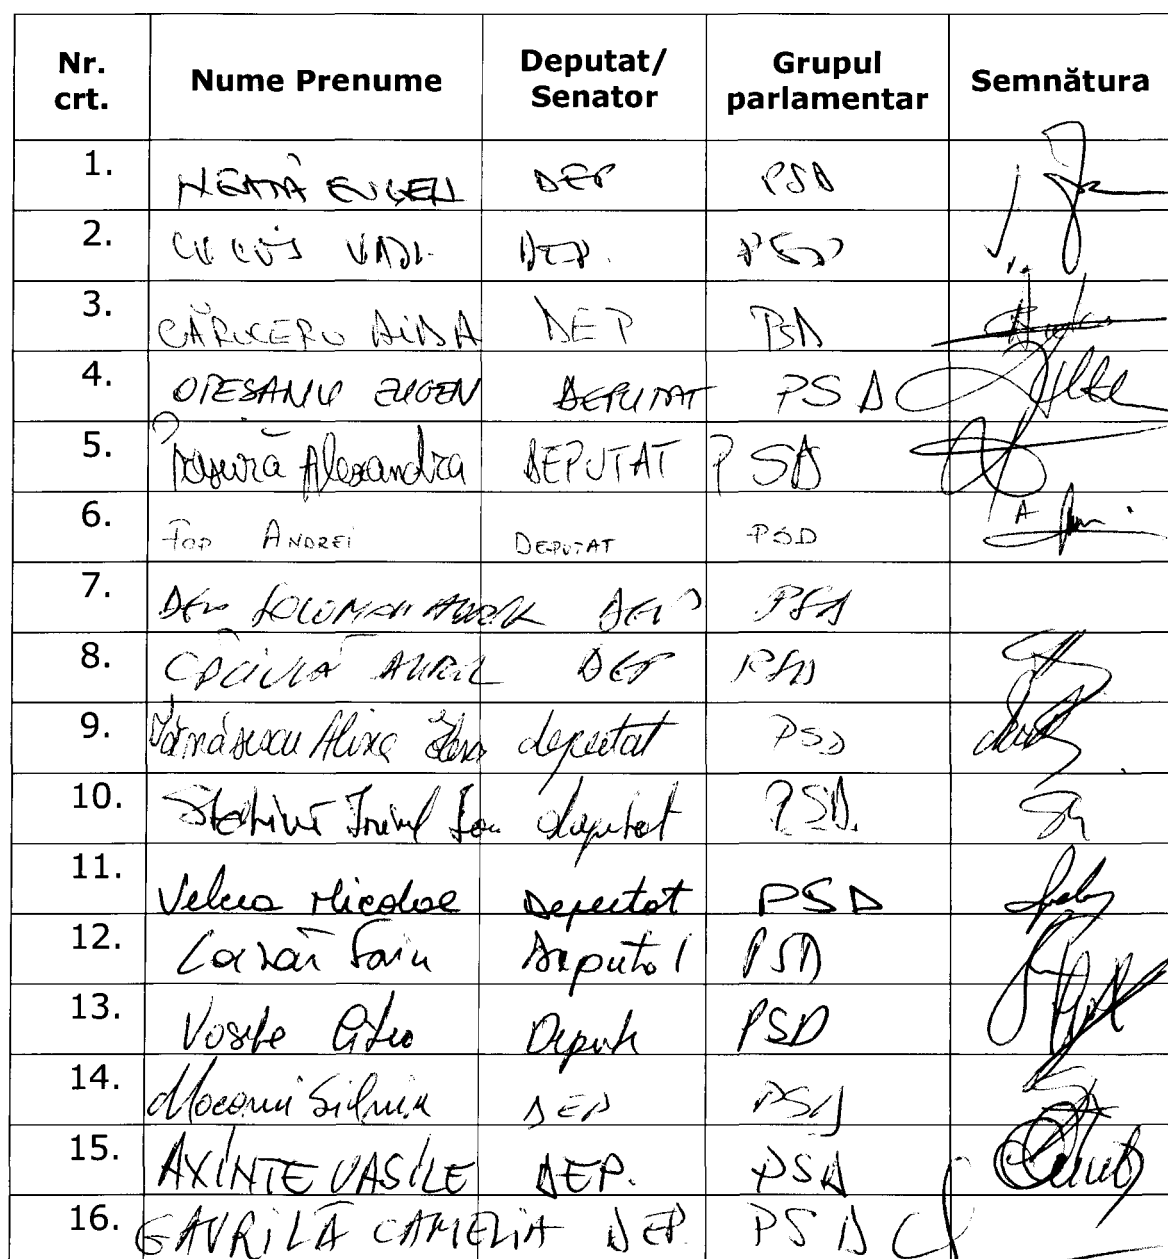 Nr. crt. Nume Prenume Deputat/ Senator Grupul parlamentar Semnătura
1. NEAȚĂ EUGEN DEP PSD
2. CUCUȘ VADI. DEP. PSD
3. CĂRUCERU AIDA DEP PSD
4. OPESANU EUGEN DEPUTAT PSD
5. Alexandra DEPUTAT PSD
6. POP ANDREI DEPUTAT PSD
7. DEP PSD
8. CĂCIULĂ AUREL DEP PSD
9. Tănăsescu Alina Elena deputat PSD
10. Ion deputat PSD.
11. Velcea Nicolae Deputat PSD
12. Lazăr Sorin Deputat PSD
13. Vasile PSD
14. Mocanu Silviu DEP PSD
15. AXINTE VASILE DEP. PSD
16. GAVRILĂ CAMELIA DEP. PSD